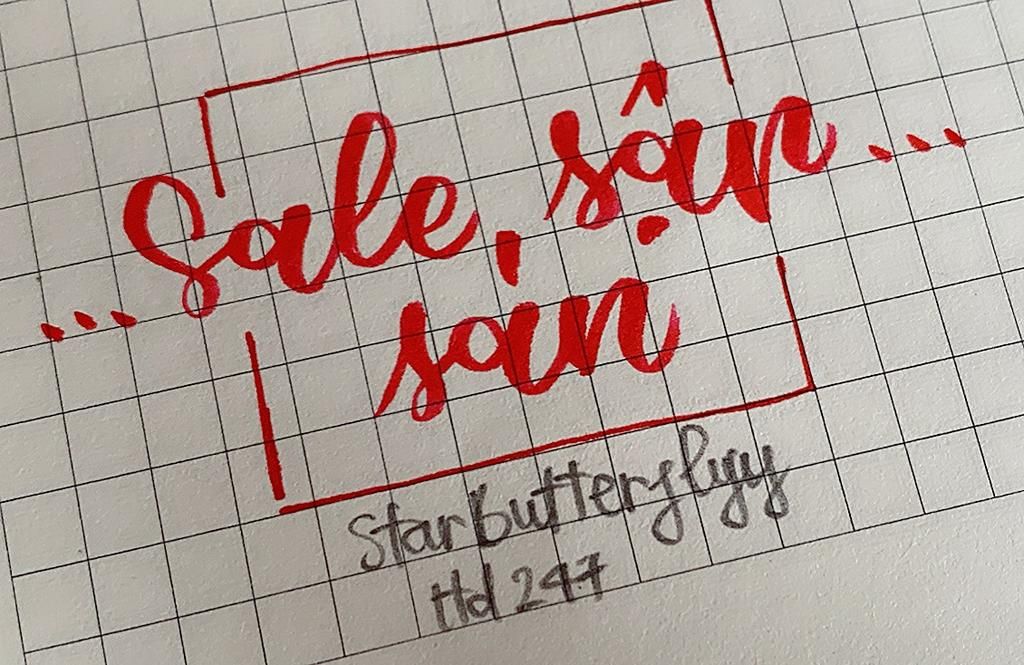 ...Sale, sận...
san
Starbutterflyy
Htd 247